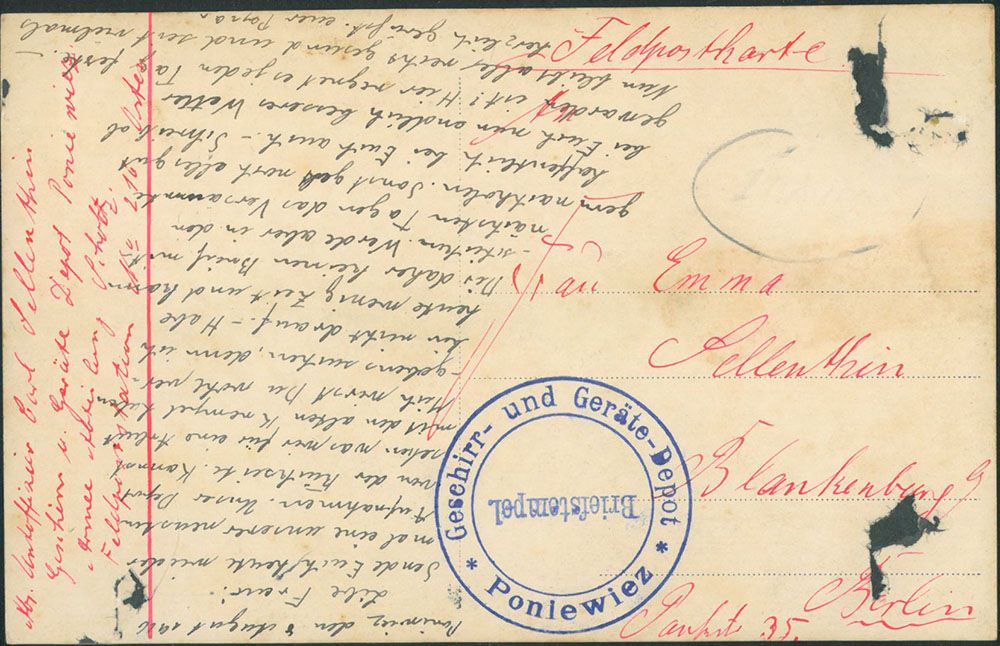 Feldpostkarte
Frau Emma
Sellenthin
Blankenburg
Berlin
Parkstr 35.
Geschirr- und Geräte-Depot
* Poniewiez *
Briefstempel
Abs. Unteroffizier Carl Sellenthin
Geschirr u. Geräte Depot Poniewiez
Armee Abteilung Scholtz
Feldpoststation No 210 Osten
Poniewiez den 8 August 1916
Liebe Frau!
Sende Euch heute wieder
mal eine unserer neusten
Aufnahmen. Unser Depot
von der Rückseite. Kannst
sehen was wir für eine Arbeit
mit den alten Krempel haben
Mich wirst Du wohl ver-
gebens suchen, denn ich
bin nicht drauf. - Habe
heute wenig Zeit und kann
Dir daher keinen Brief mit
-schicken. Werde aber in den
nächsten Tagen das Versäumte
gern nachholen. Sonst geht noch alles gut
hoffentlich bei Euch auch. - Schreib
bei Euch nun endlich besseres Wetter
geworden ist? Hier regnet es jeden
Nun bleibt alle recht gesund und seit vielmals
herzlich gegrüßt. euer Papa